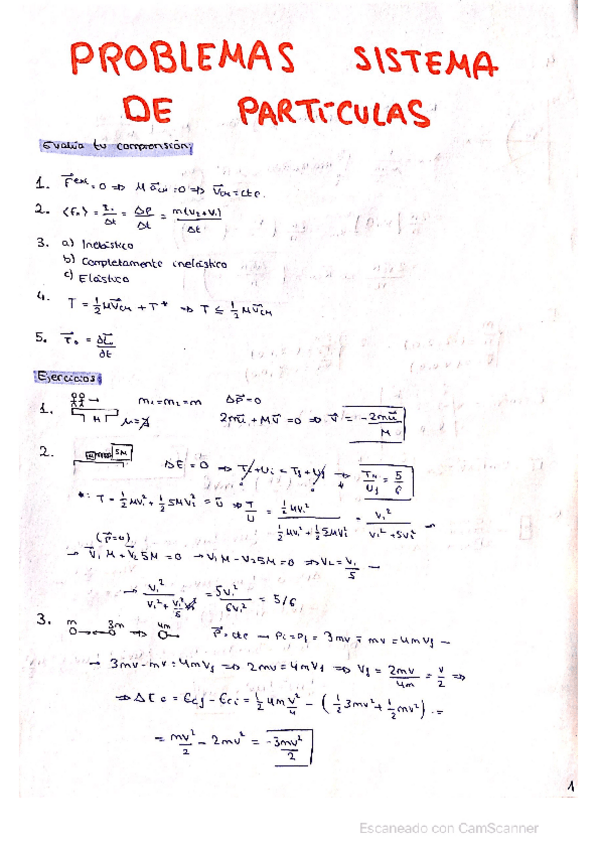 PROBLEMAS SISTEMA
DE PARTÍCULAS
Evalúa tu comprensión:
1. F⃗ᵉˣᵗ = 0 ⇒ M a⃗CM = 0 ⇒ V⃗CM = cte.
2. = Δp/Δt = m(V₂+V₁)/Δt
3. a) Inelástico
b) Completamente inelástico
c) Elástico
4. T = ½MV⃗CM + T* ⇒ T ≤ ½MV⃗CM
5. = ΔL⃗/dt
Ejercicios:
1. m₁=m₂=m Δp⃗=0
M 2mu⃗ + MV⃗ = 0 ⇒ V⃗ = -2mu⃗/M
2. 5M
ΔE = 0 ⇒ = 5/6
*: T = ½MV₁² + ½5MV₂² = U ⇒ T/U = ½MV₁² / (½MV₁² + ½5MV₂²) = V₁² / (V₁² + 5V₂²)
(p⃗=0)
→ V⃗₁M + V⃗₂5M = 0 → V₁M - V₂5M = 0 ⇒ V₂ = V₁/5
= 5V₁²/6V₁² = 5/6
3. m 3m ⇒ 4m p⃗ = cte → Pi = Pf = 3mv = 4mVf
→ 3mv - mv = 4mVf ⇒ 2mv = 4mVf ⇒ Vf = 2mv/4m = v/2 ⇒
⇒ ΔEc = Ecf - Eci = ½4m v²/4 - (½3mv² + ½mv²) =
= mv²/2 - 2mv² = -3mv²/2
1
Escaneado con CamScanner